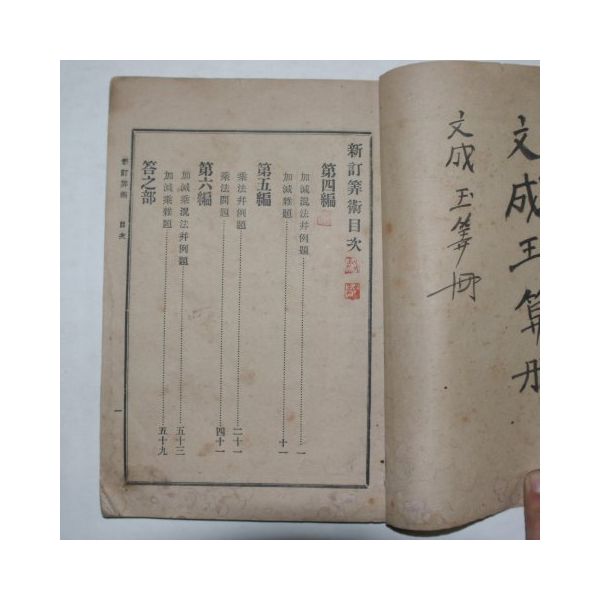 文成玉算冊
文成玉筭冊
新訂筭術目次
第四編
加減混法幷例題……一
加減雜題……十一
第五編
乘法幷例題……二十一
乘法問題……四十一
第六編
加減乘混法幷例題……五十三
加減乘雜題……五十九
答之部
新訂筭術 目次 一